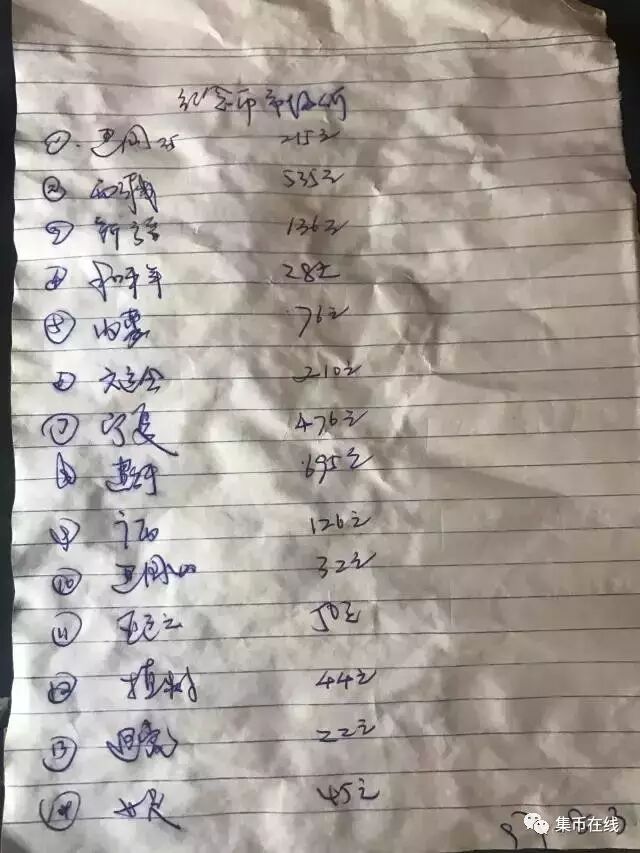 纪念币市场价
① 建国35 215元
② 西藏 535元
③ 新疆 136元
④ 和平年 28元
⑤ 内蒙 76元
⑥ 六运会 210元
⑦ 宁夏 476元
⑧ 建行 695元
⑨ 广西 126元
⑩ 建国40 32元
⑪ 亚运会 50元
⑫ 植树 44元
⑬ 22元
⑭ 女足 45元
集币在线